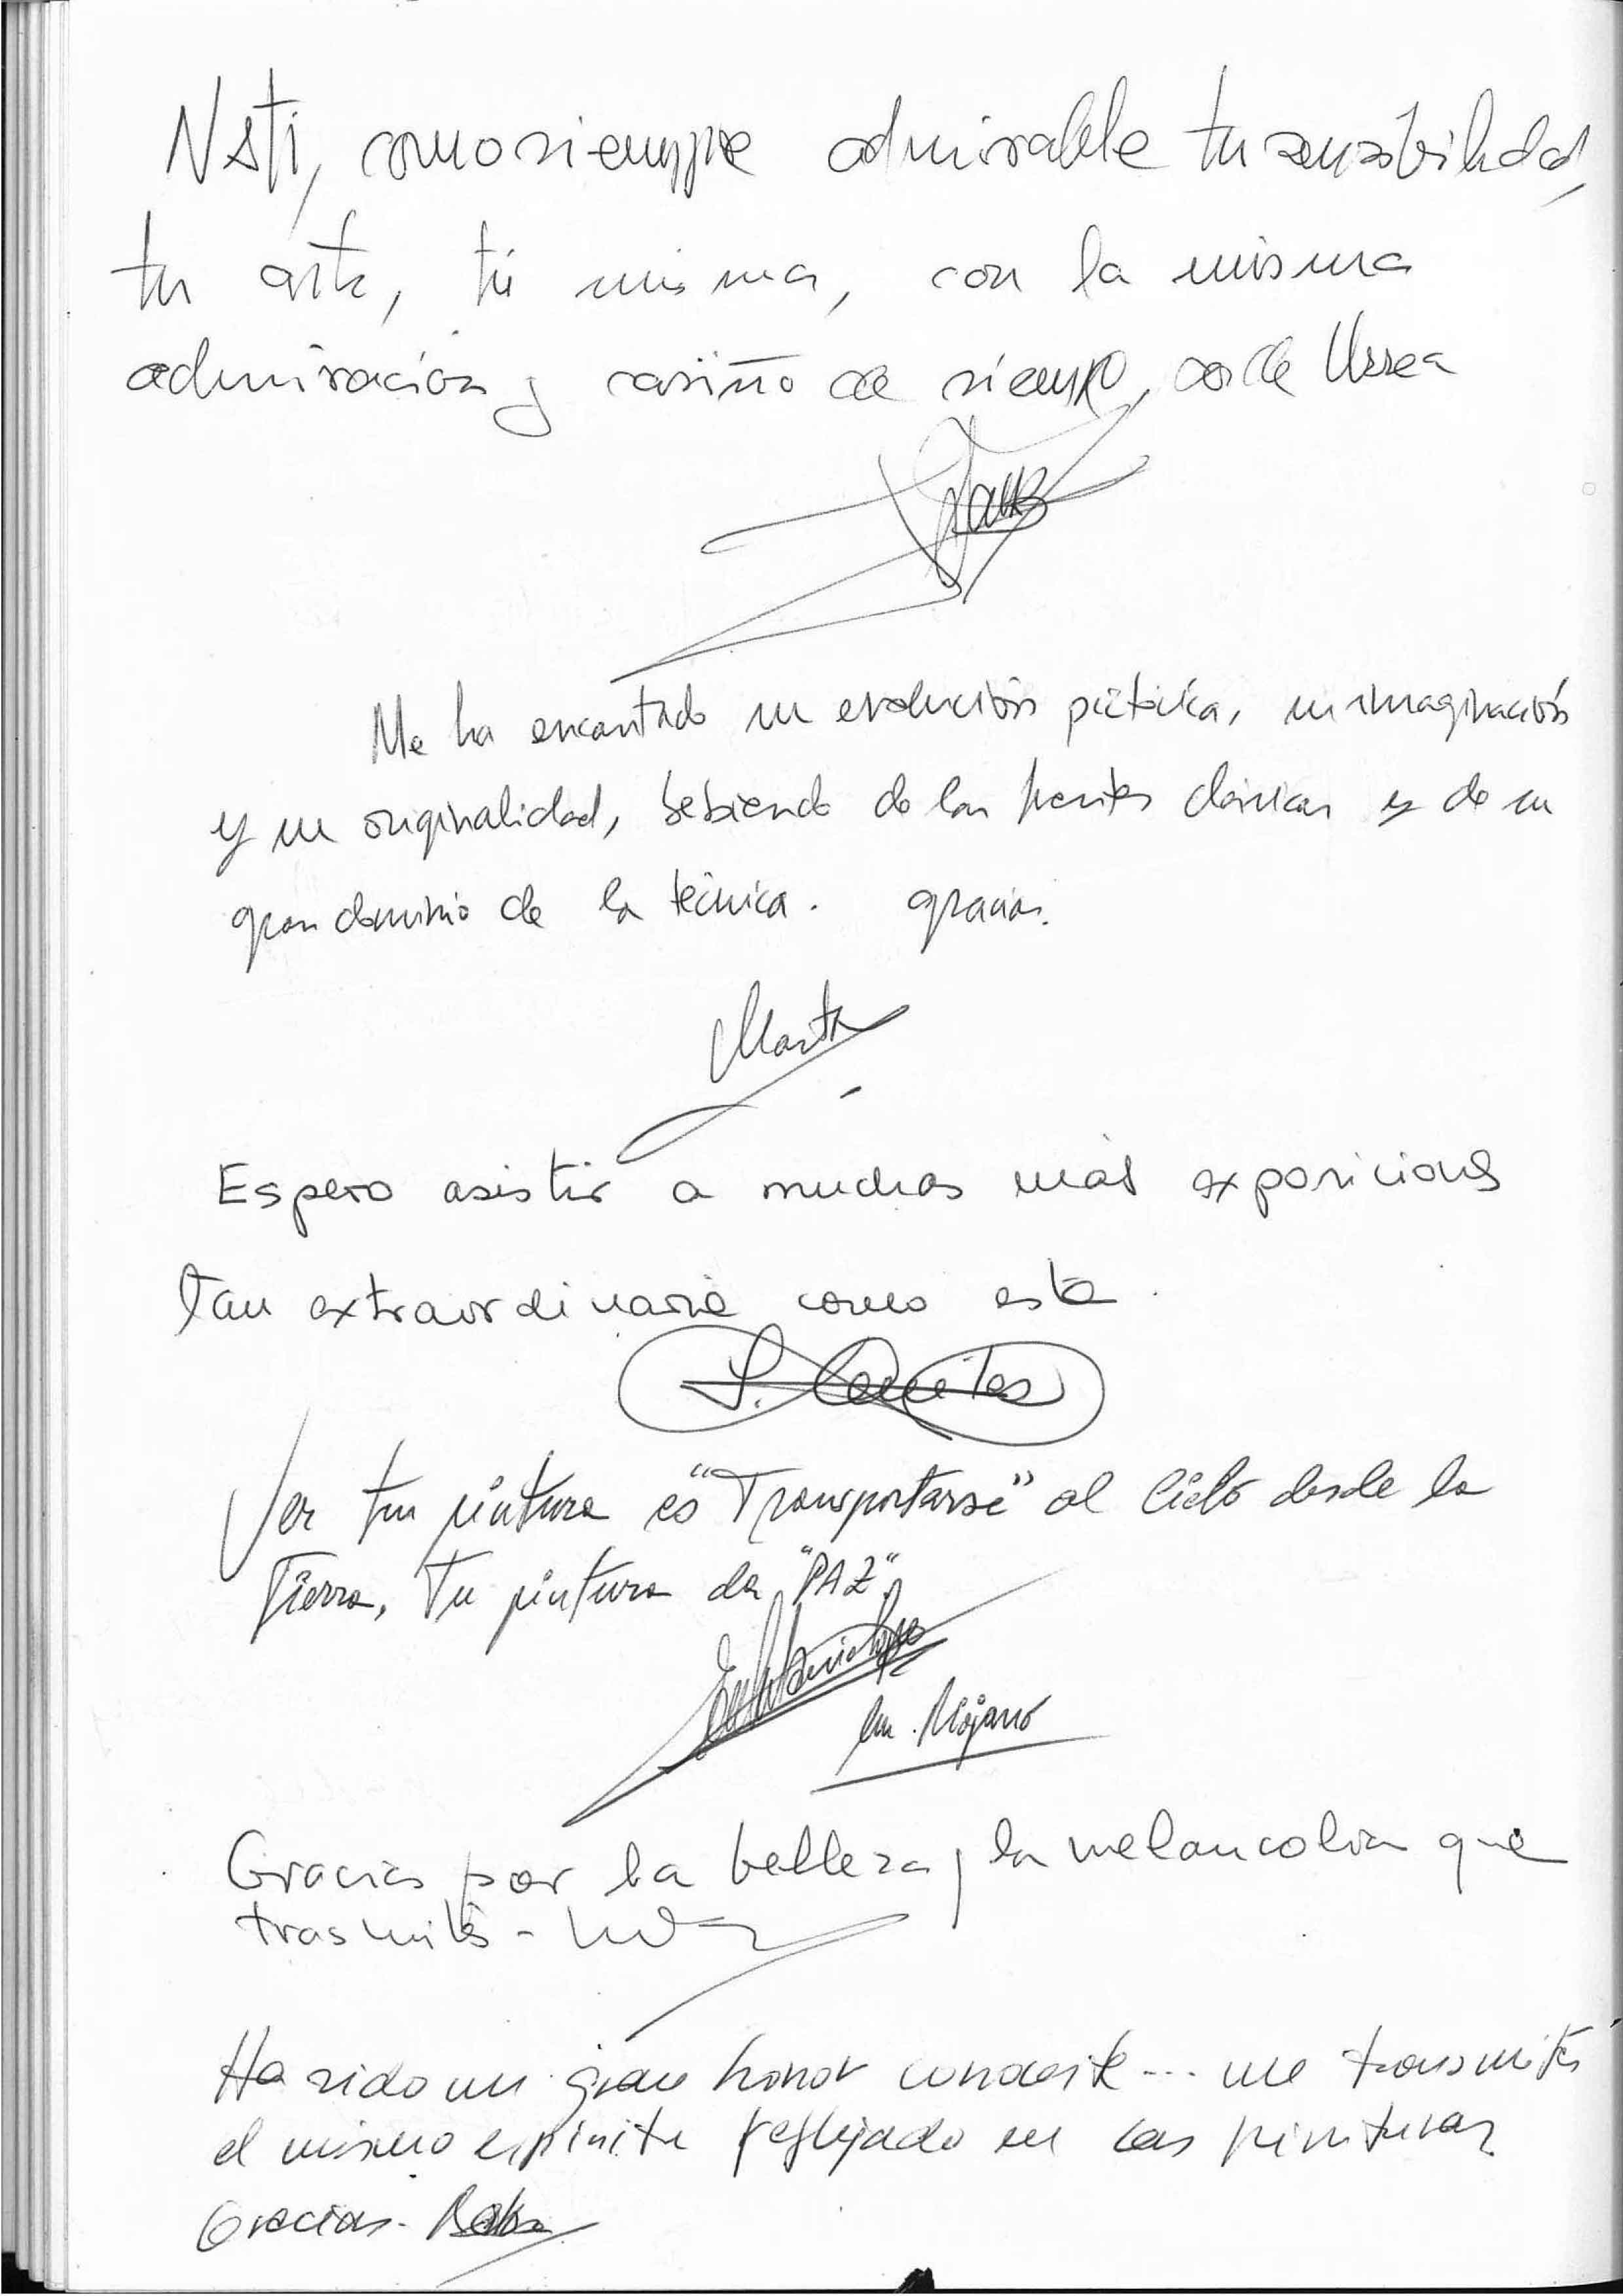 Nati, como siempre admirable tu sensibilidad,
tu arte, tú misma, con la misma
admiración y cariño de siempre, desde Urrea
Me ha encantado su evolución pictórica, su imaginación
y su originalidad, bebiendo de las fuentes clásicas y de su
gran dominio de la técnica. gracias.
Marta
Espero asistir a muchas más exposiciones
tan extraordinaria como esta.
Ver tu pintura es "Transportarse" al Cielo desde la
Tierra, Tu pintura da "PAZ".
un Riojano
Gracias por la belleza y la melancolía que
trasmites -
Ha sido un gran honor conocerte... me transmites
el mismo espíritu reflejado en las pinturas
Gracias.